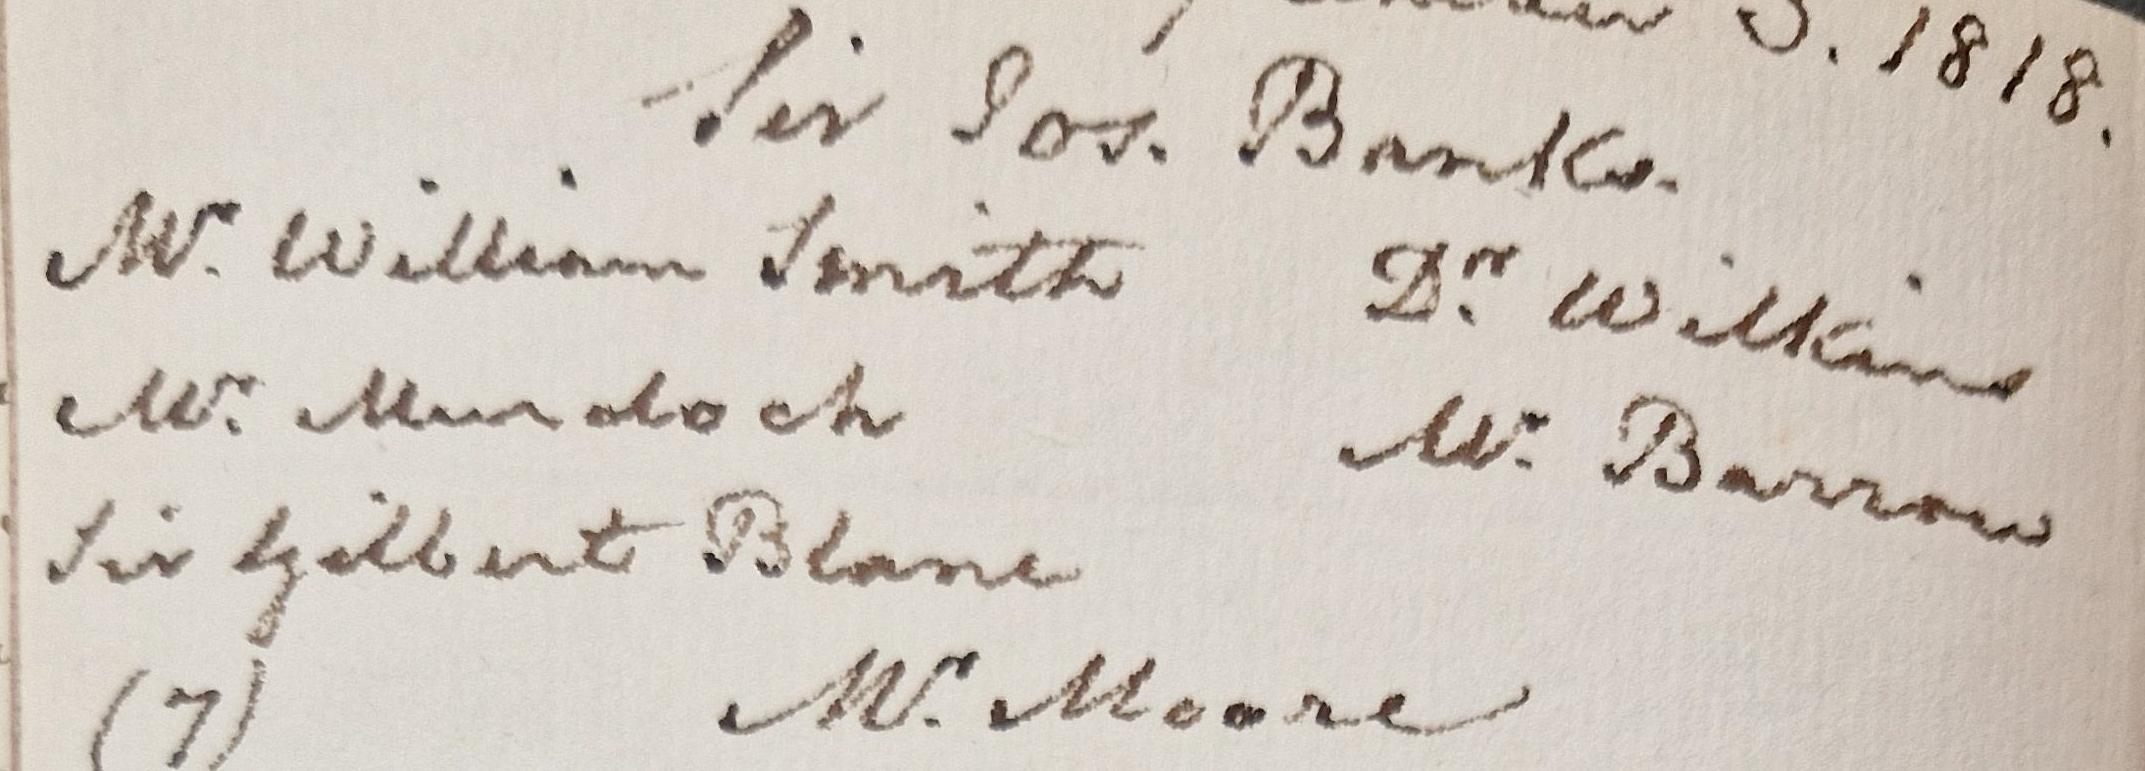 3. 1818.
Sir Jos. Banks.
Mr. William Smith Dr. Wilkins
Mr. Murdoch Mr. Barrow
Sir Gilbert Blane
(7) Mr. Moore